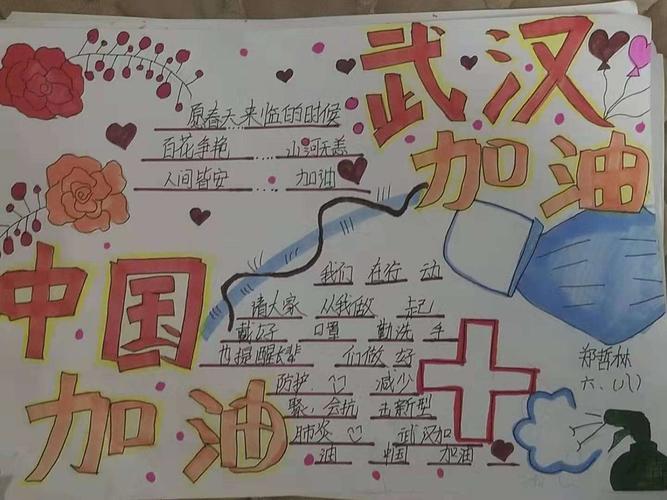 武汉
加油
原春天来临的时候
百花争艳……山河无恙
人间皆安……加油
中国
加油
我们 在行 动
请大家 从我做 起!
戴好 口罩 勤洗 手
也提醒长辈 们做 好
防护. 减少
聚会 抗 击新型
肺炎 武汉加
油 中国 加油
郑哲林
六.(八)